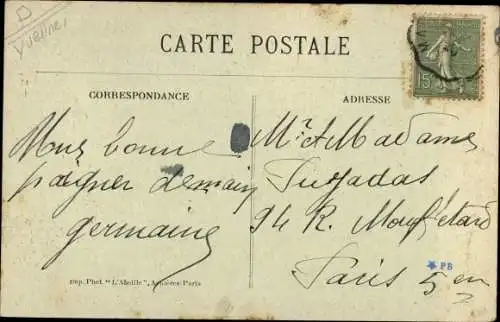 D
CARTE POSTALE
15
CORRESPONDANCE
ADRESSE
Une bonne
demain
germaine
Mr et Madame
Pujadas
94 R. Mouffetard
Paris 5em
* PB
Imp. Phot. "L'Abeille", Asnières-Paris